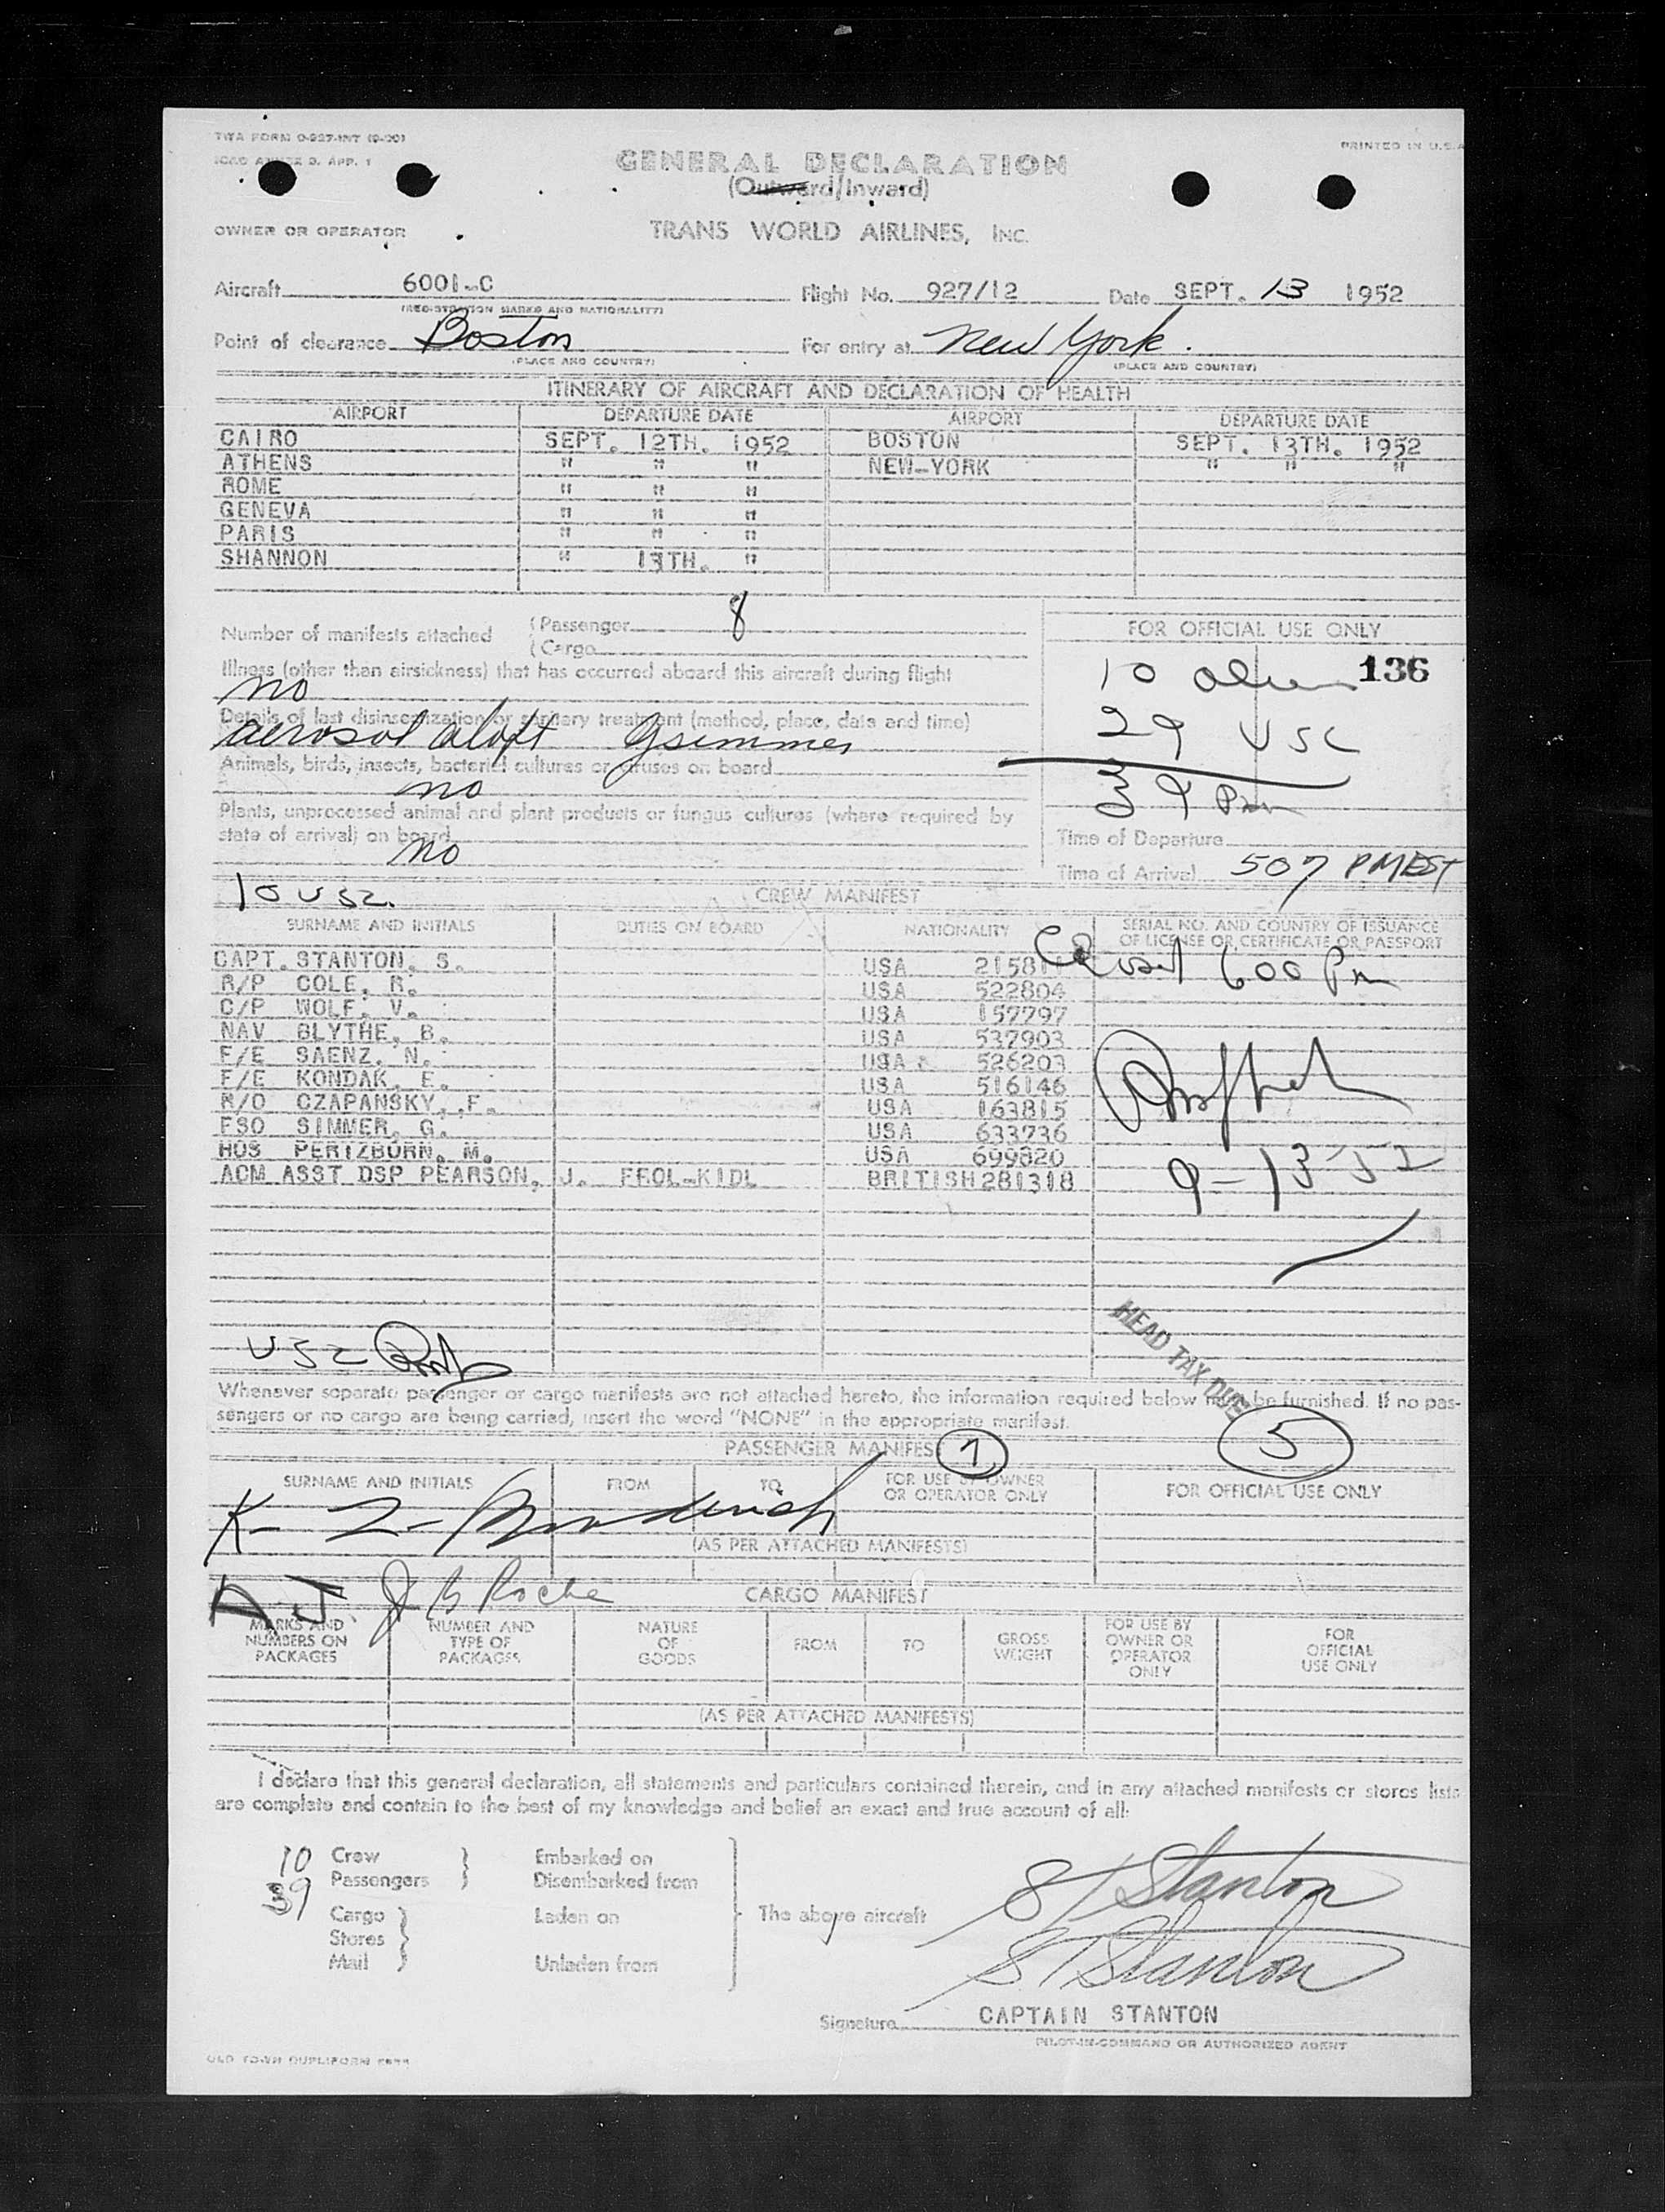 TWA FORM O-927-INT
ICAO ANNEX 9. APP. 1
PRINTED IN U.S.A
GENERAL DECLARATION
(Outward/Inward)
OWNER OR OPERATOR
TRANS WORLD AIRLINES, INC.
Aircraft 6001-C Flight No. 927/12 Date SEPT. 13 1952
(REGISTRATION MARKS AND NATIONALITY)
Point of clearance Boston For entry at New York.
(PLACE AND COUNTRY) (PLACE AND COUNTRY)
ITINERARY OF AIRCRAFT AND DECLARATION OF HEALTH
AIRPORT DEPARTURE DATE AIRPORT DEPARTURE DATE
CAIRO SEPT. 12TH. 1952 BOSTON SEPT. 13TH. 1952
ATHENS " " " NEW-YORK " " "
ROME " " "
GENEVA " " "
PARIS " " "
SHANNON " 13TH. "
Number of manifests attached (Passenger 8
(Cargo
FOR OFFICIAL USE ONLY
Illness (other than airsickness) that has occurred aboard this aircraft during flight
no
10 136
Details of last disinsectization or sanitary treatment (method, place, date and time)
aerosol aloft GSimmer
29 USC
Animals, birds, insects, bacterial cultures or viruses on board
no
39
Plants, unprocessed animal and plant products or fungus cultures (where required by
state of arrival) on board no
Time of Departure
Time of Arrival 507 PMEST
10 USZ.
CREW MANIFEST
SURNAME AND INITIALS DUTIES ON BOARD NATIONALITY SERIAL NO. AND COUNTRY OF ISSUANCE
OF LICENSE OR CERTIFICATE OR PASSPORT
CAPT. STANTON, S. USA 21581
600 Pm
R/P COLE, R. USA 522804
C/P WOLF, V. USA 157797
NAV BLYTHE, B. USA 537903
F/E SAENZ, N. USA 526203
F/E KONDAK, E. USA 516146
R/O CZAPANSKY, F. USA 163815
FSO SIMMER, G. USA 633736
HOS PERTZBORN, M. USA 699820
ACM ASST DSP PEARSON, J. FEOL-KIDL BRITISH 281318
9-13-52
HEAD TAX DUE
USZ
Whenever separate passenger or cargo manifests are not attached hereto, the information required below must be furnished. If no pas-
sengers or no cargo are being carried, insert the word "NONE" in the appropriate manifest.
5
PASSENGER MANIFEST 1
SURNAME AND INITIALS FROM TO FOR USE BY OWNER
OR OPERATOR ONLY FOR OFFICIAL USE ONLY
K-
(AS PER ATTACHED MANIFESTS)
J B Roche
CARGO MANIFEST
MARKS AND
NUMBERS ON
PACKAGES NUMBER AND
TYPE OF
PACKAGES NATURE
OF
GOODS FROM TO GROSS
WEIGHT FOR USE BY
OWNER OR
OPERATOR
ONLY FOR
OFFICIAL
USE ONLY
(AS PER ATTACHED MANIFESTS)
I declare that this general declaration, all statements and particulars contained therein, and in any attached manifests or stores lists
are complete and contain to the best of my knowledge and belief an exact and true account of all:
10 Crew Embarked on
39 Passengers Disembarked from
Cargo Laden on The above aircraft
Stores
Mail Unladen from
S T Stanton
S T Stanton
Signature CAPTAIN STANTON
PILOT-IN-COMMAND OR AUTHORIZED AGENT
OLD TOWN DUPLIFORM